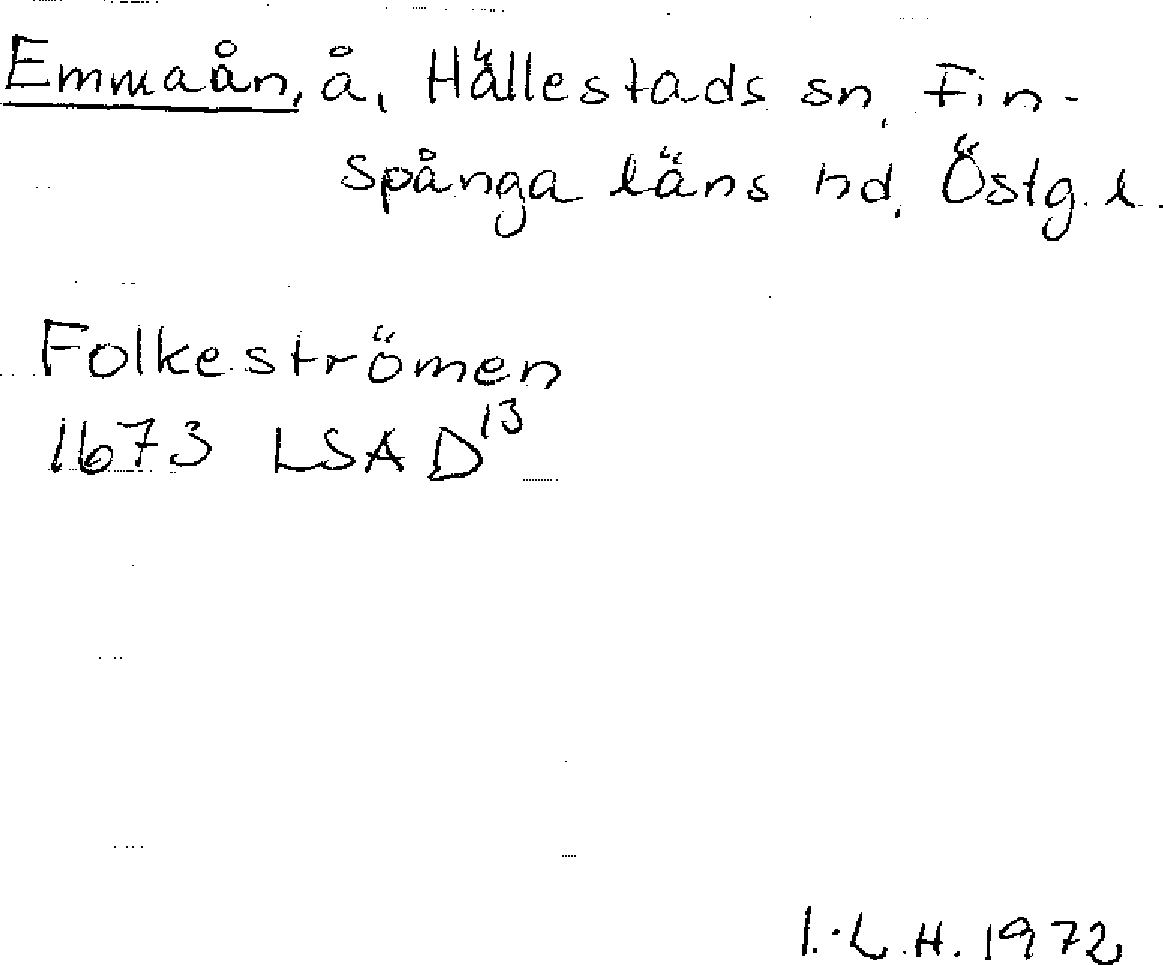 Emmaån, å, Hällestads sn, Fin-
spånga läns hd, Östg. l.
Folkeströmen
1673 LSA D13
I.L.H. 1972